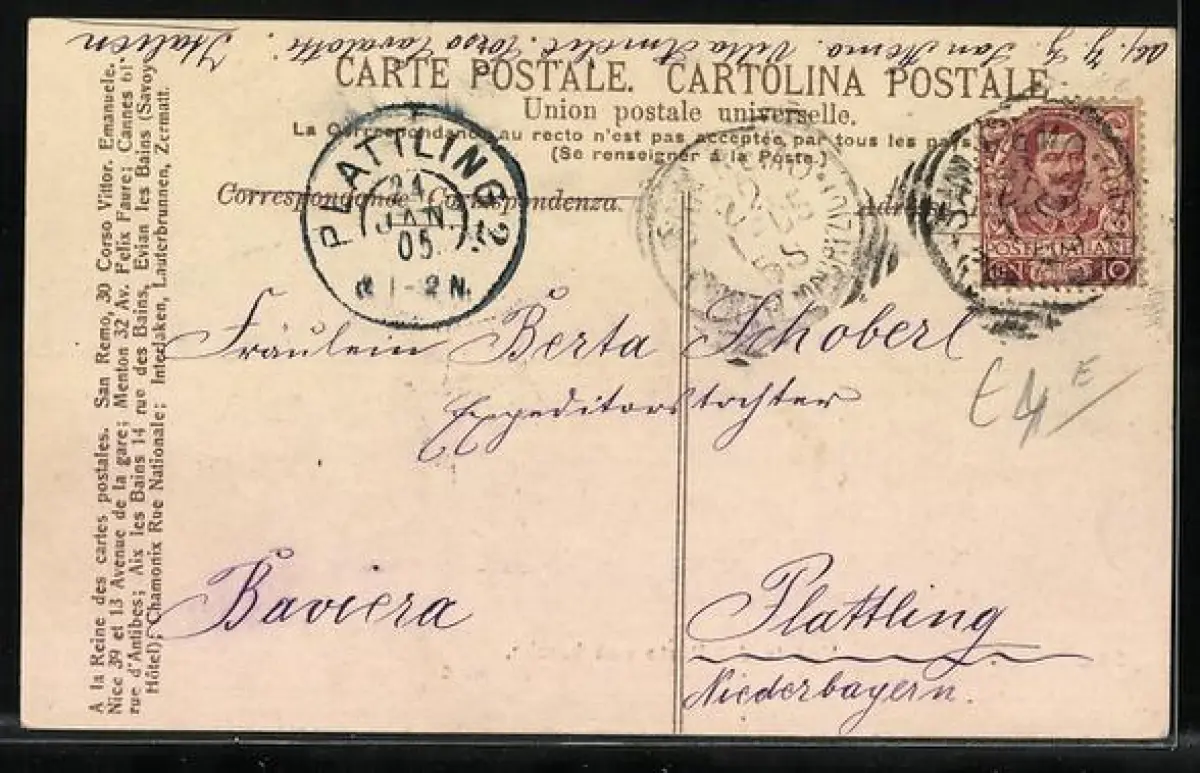 San Remo. Villa
Italien
CARTE POSTALE. CARTOLINA POSTALE
Union postale universelle.
La Correspondance au recto n'est pas acceptée par tous les pays
(Se renseigner à la Poste.)
Correspondance Correspondenza.
PLATTLING 2
21
JAN.
05.
1-2 N.
POSTE ITALIANE
10
Fräulein Berta Schoberl
Expeditorstochter
Baviera
Plattling
Niederbayern.
A la Reine des cartes postales. San Remo, 30 Corso Vittor. Emanuele.
Nice 39 et 13 Avenue de la gare; Menton 32 Av. Felix Faure; Cannes 61
rue d'Antibes; Aix les Bains 14 rue des Bains, Evian les Bains (Savoy
Hôtel); Chamonix Rue Nationale; Interlaken, Lauterbrunnen, Zermatt.